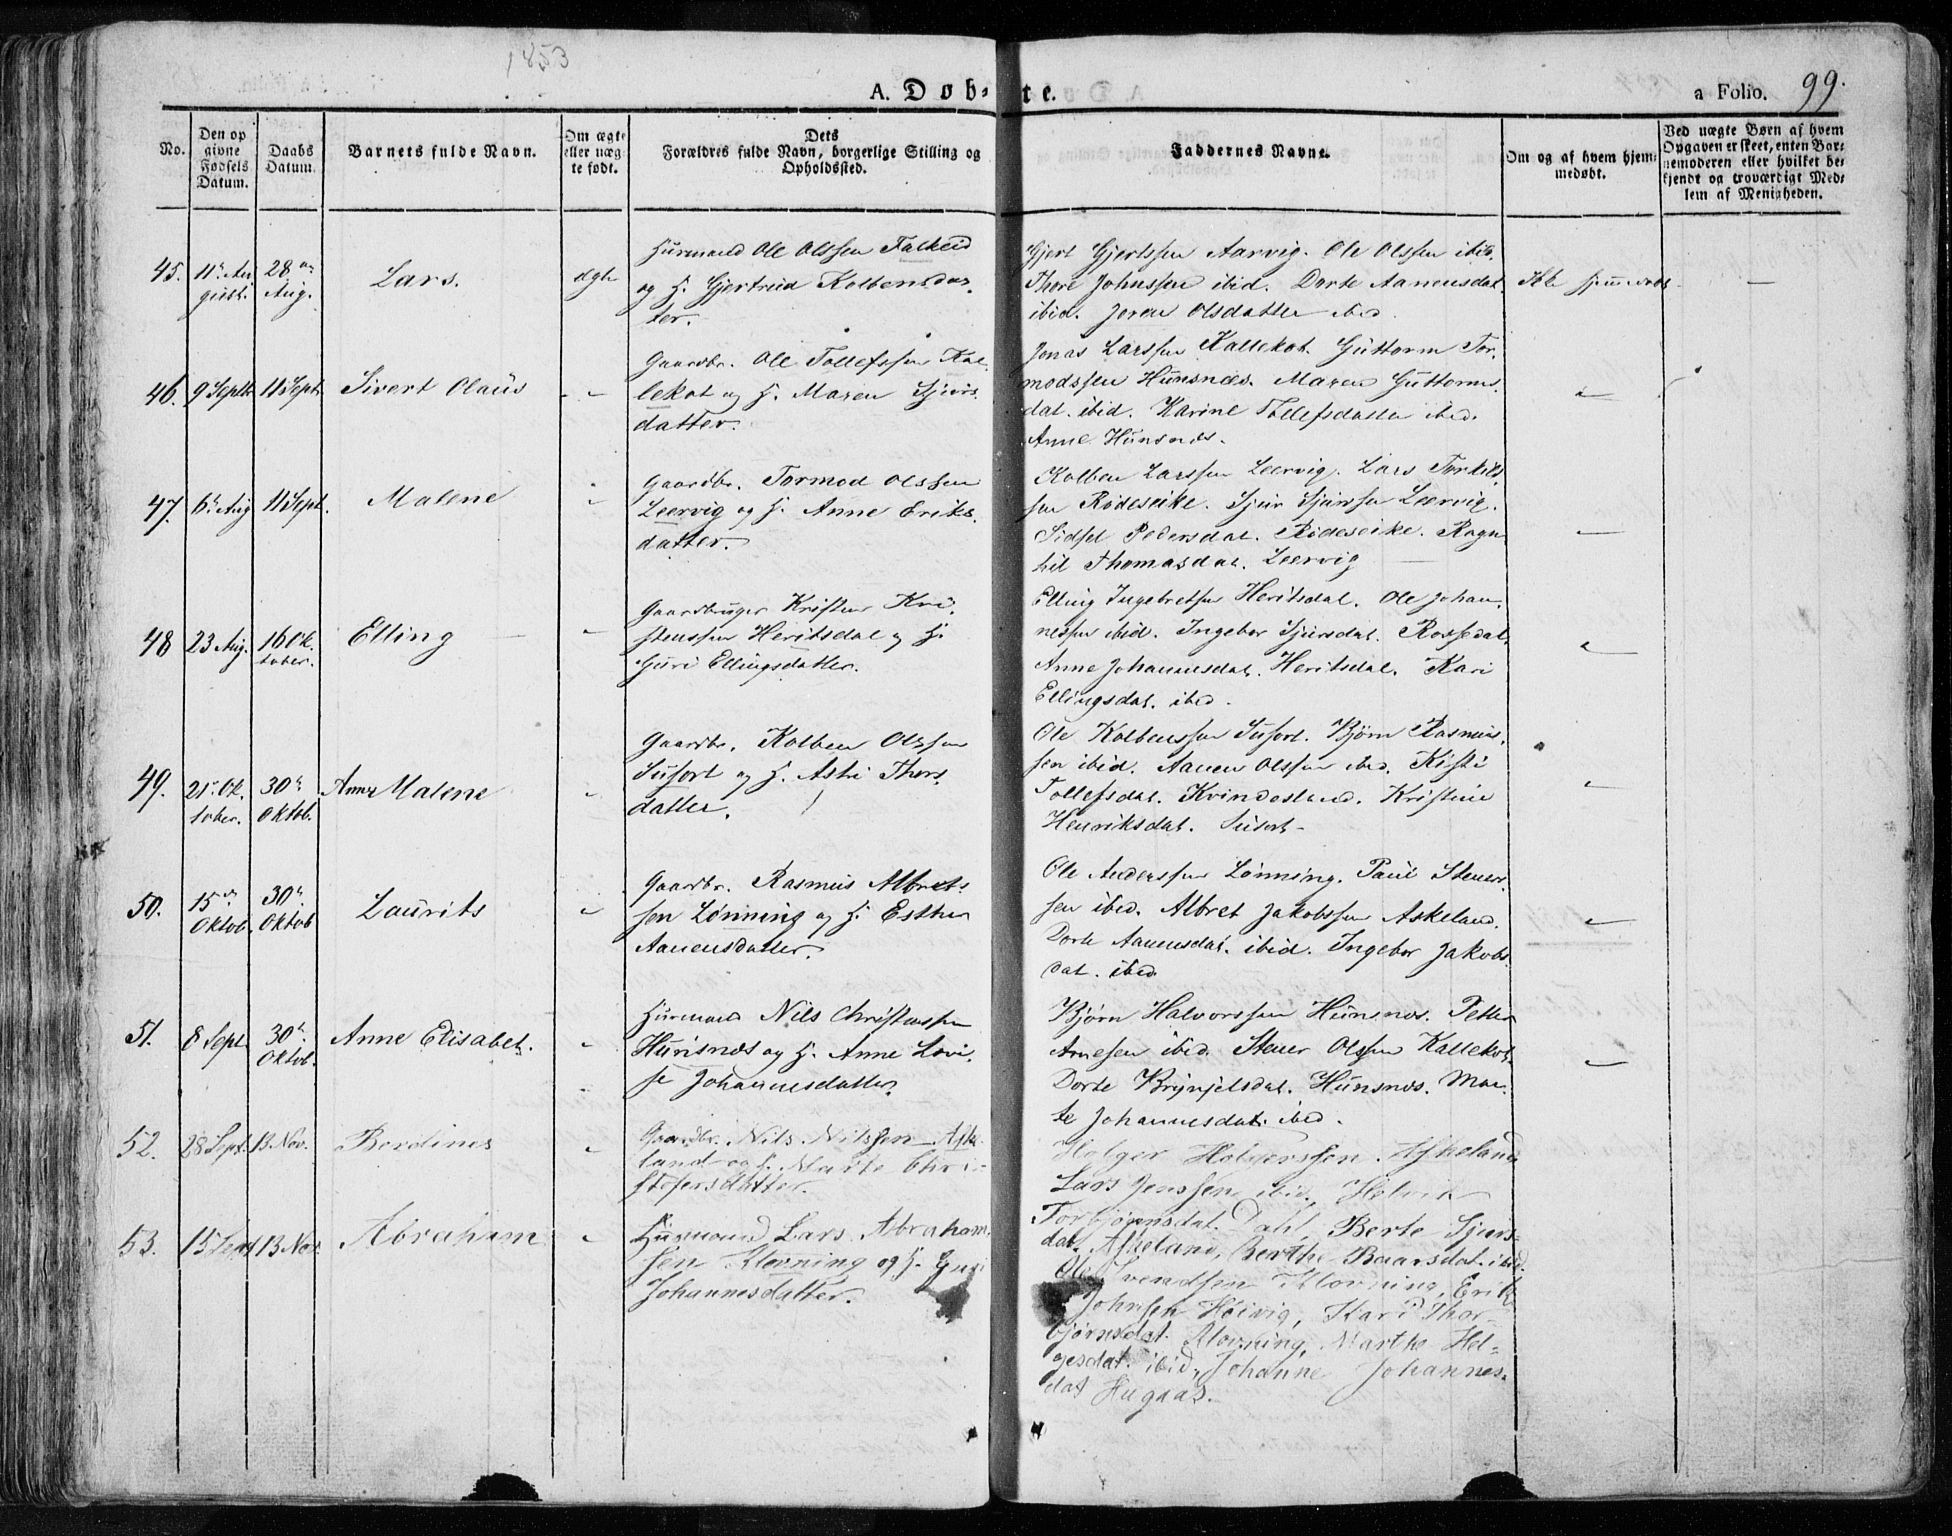 1853
A. Døb-te.
a Folio. 99.
No.
Den op
givne
Fødsels
Datum.
Daabs
Datum.
Barnets fulde Navn.
Om ægte
eller uæg-
te født.
Dets
Forældres fulde Navn, borgerlige Stilling og
Opholdssted.
Faddernes Navne.
Om og af hvem hjem-
medøbt.
Ved uægte Børn af hvem
Opgaven er skeet, enten Bar-
nemoderen eller hvilket be-
kjendt og troværdigt Med-
lem af Menigheden.
45. 11te Au
gust.
28de
Aug.
Lars.
ægte
Huusmand Ole Olssen Falkeid
og H. Gjertrud Kolbensdat
ter.
Gjert Gjertssen Aarvig. Ole Olssen ibid.
Thore Johnssen ibid. Dorte Aanensdat.
ibid. Joren Olsdatter ibid.
Ikke hjemmedøbt
—
46. 9 Septb. 11 Sept.
Sivert Olaüs
Gaardbr. Ole Tollefssen Kal
lekot og H. Maren Sjürs
datter.
Jonas Larssen Kallekot. Güttorm Tor
modssen Hünsnæs. Maren Güttorms
dat. ibid. Karine Tollefsdatter ibid.
Anne Hünsnæs.
47. 6te Aug 11 Sept.
Malene
Gaardbr. Tormod Olssen
Leervig og H. Anne Eriks
datter.
Kolben Larssen Leervig. Lars Torkils
sen Rødeseike. Sjür Sjürsen Leervig.
Sidsel Pedersdat. Rødeseike. Ragn
hil Thomasdat. Leervig —
48 23 Aug. 16 Ok.
tober.
Elling
Gaardbruger Kristen Kri
stenssen Heritsdal og H.
Guri Ellingsdatter.
Elling Ingebretsen Heritsdal. Ole Johan
nessen ibid. Ingebor Sjürsdat. Rossedal.
Anne Johannesdat. Heritsdal. Kari
Ellingsdat. ibid.
49. 21de Ok.
tober.
30te
Oktob.
Anne Malene
Gaardbr. Kolben Olssen
Süsort og H. Astri Thors
datter.
Ole Kolbenssen Süsort. Bjørn Rasmüs
sen ibid. Aanen Olssen ibid. Kisti
Tollefsdat. Kvindesland. Kristine
Henriksdat. Süsort.
50. 15de
Oktob.
30te
Oktob
Laurits
Gaardbr. Rasmüs Albret
sen Lønning og H. Esther
Aanensdatter.
Ole Anderssen Lønning. Paül Stener
sen ibid. Albret Jakobssen Askeland.
Dorte Aanensdat. ibid. Ingebor Jakobs
dat. ibid
51. 8 Sept. 30te
Oktob.
Anne Elisabet.
Huusmand Nils Christenssen
Hünsnæs og H. Anne Lovi
se Johannesdatter.
Bjørn Halvorssen Hünsnæs. Petter
Arnesen ibid. Stener Olssen Kallekot.
Dorte Brynjelsdat. Hünsnæs. Mar
te Johannesdat. ibid.
52. 28 Sept. 13 Nov.
Berdines
Gaardbr. Nils Nilssen Aske
land og H. Marte Chri-
stofersdatter.
Holger Holgerssen Askeland
Lars Jenssen ibid.
Torbjørnsdat. Dahl, Berte Sjurs
dat. Askeland, Berthe Baarsdat. ibid.
53. 15 Sept 13 Nov.
Abraham
Huusmand Lars Abraham
sen Klovning og H. Guri
Johannesdatter.
Ole Svendsen Klovning, Erik
Johnsen Høivig, Kari Thor-
bjørnsdat. Klovning, Marthe Hel-
gesdat. ibid, Johanne Johannes-
dat Hugaas.